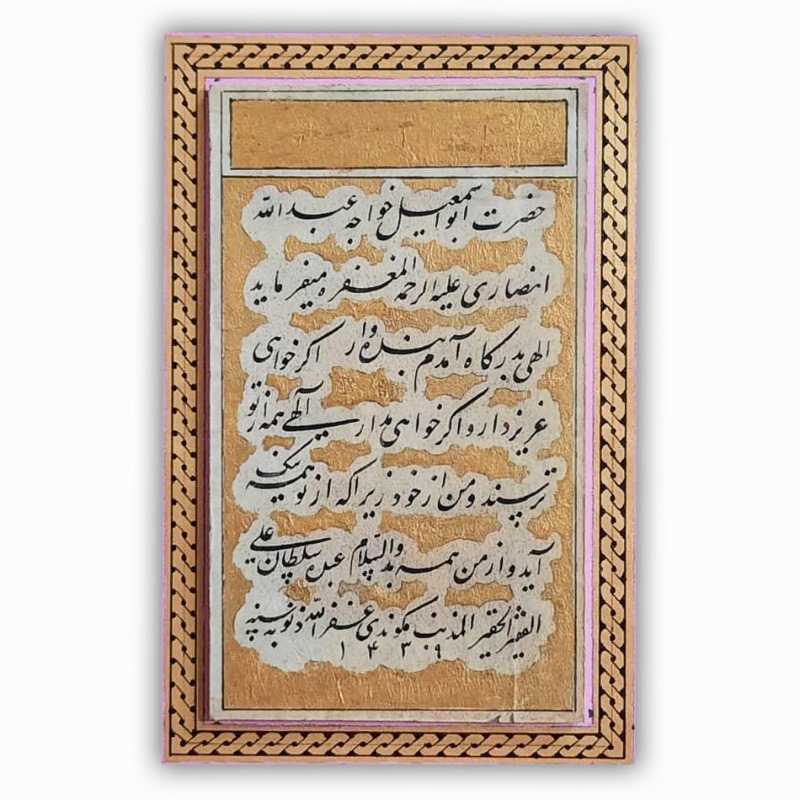 حضرت ابو اسمعیل خواجه عبد الله
انصاری علیه الرحمه المغفره میفرماید
الهی بدرگاه آمدم بنده وار اگر خواهی
عزیز دار و اگر خواهی مدار الهی همه از تو
ترسند و من از خود زیرا که از تو همه نیک
آید و از من همه بد والسلام عبده سلطان علی
الفقیر الحقیر المذنب غفر الله ذنوبه سنه
۱۴۳۹